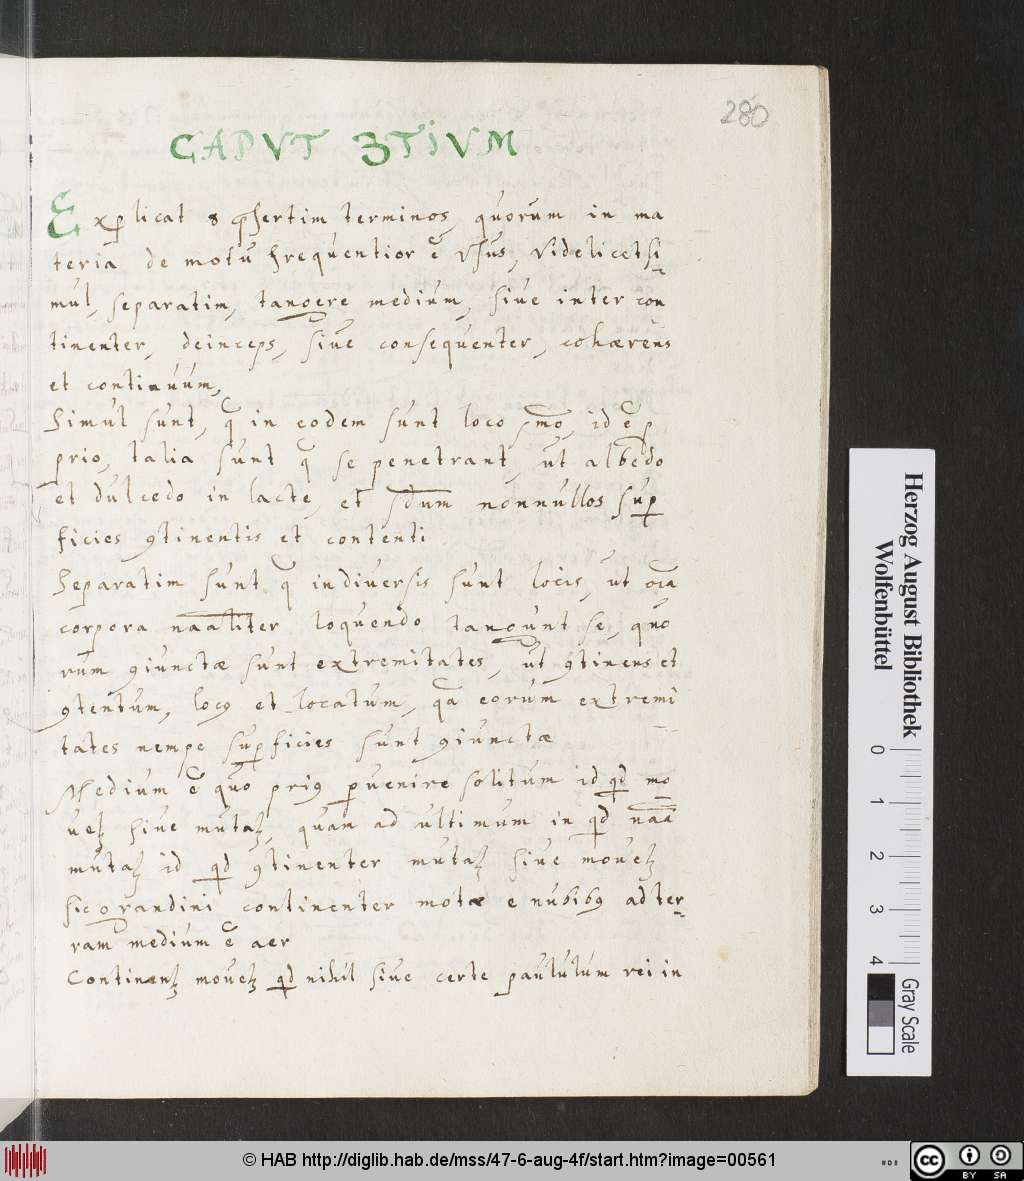 280
CAPVT 3TIVM
Explicat 8 p̃sertim terminos, quorum in ma
teria de motu frequentior ẽ Vsus, Videlicet si
mul, separatim, tangere medium, siue inter con
tinenter, deinceps, siue consequenter, cohærens
et continuum,
Simul sunt, q̃ in eodem sunt loco pmo, id ẽ p
prio, talia sunt q̃ se penetrant, ut albedo
et dulcedo in lacte, et sdum nonnullos sup
ficies 9tinentis et contenti
Separatim sunt q̃ in diuersis sunt locis, ut oĩa
corpora naaliter loquendo tangunt se, quo
rum 9iunctæ sunt extremitates, ut 9tinens et
9tentum, loc9 et locatum, qa eorum extremi
tates nempe supficies sunt 9iunctæ
Medium ẽ quo pri9 puenire solitum id qd mo
uet siue mutat, quam ad ultimum in qd naa
mutat id qd 9tinenter mutat siue mouet
sic grandini continenter motæ e nubib9 ad ter
ram medium ẽ aer
Continent mouet qd nihil siue certe paululum rei in
Herzog August Bibliothek
Wolfenbüttel
0 1 2 3 4
Gray Scale
© HAB http://diglib.hab.de/mss/47-6-aug-4f/start.htm?image=00561
cc BY SA